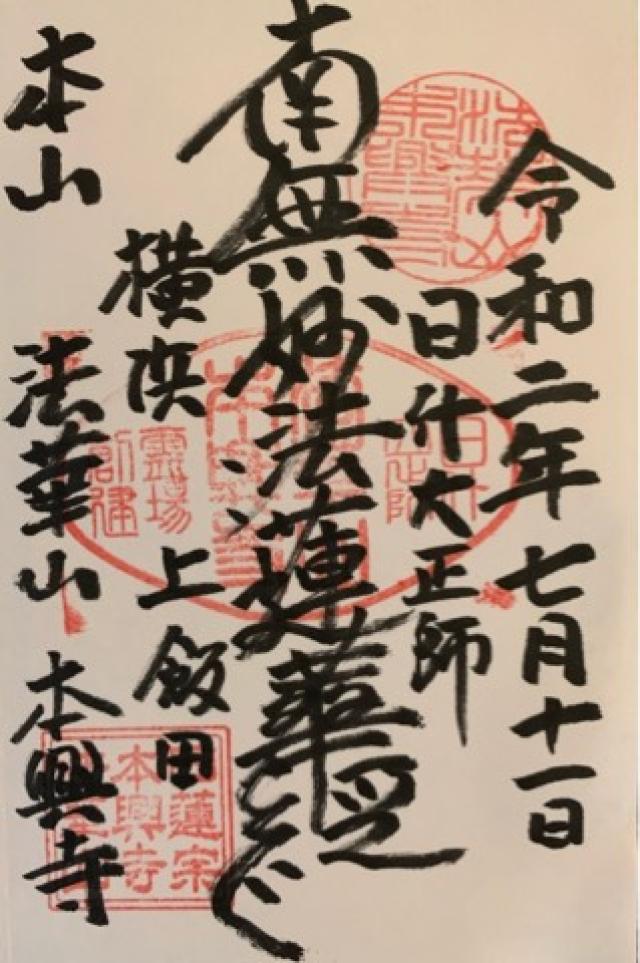 令和二年七月十一日
日什大正師
南無妙法蓮華経
横浜 上飯田
本山 法華山 本興寺
霊場
創建
蓮宗
本興寺